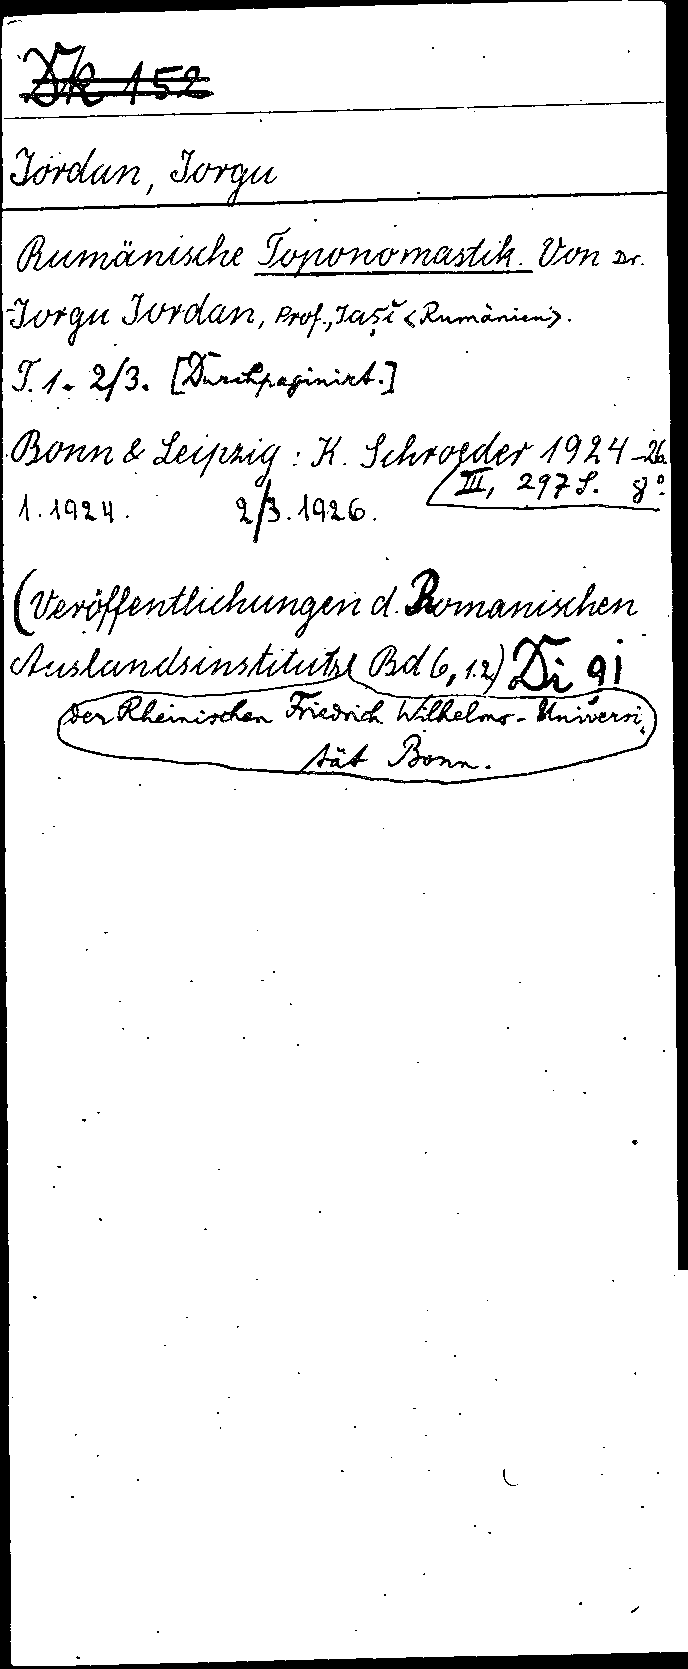 Dk 152
Jordan, Jorgu
Rumänische Toponomastik. Von Dr.
Jorgu Jordan, Prof., Jaşĭ <Rumänien>.
T. 1. 2/3. [Durchpaginirt.]
Bonn & Leipzig: K. Schroeder 1924-26.
III, 297 S. 8°.
1. 1924. 2/3. 1926.
(Veröffentlichungen d. Romanischen
Auslandsinstituts Bd 6, 1.2) Di 9i
der Rheinischen Friedrich Wilhelms-Universi-
tät Bonn.